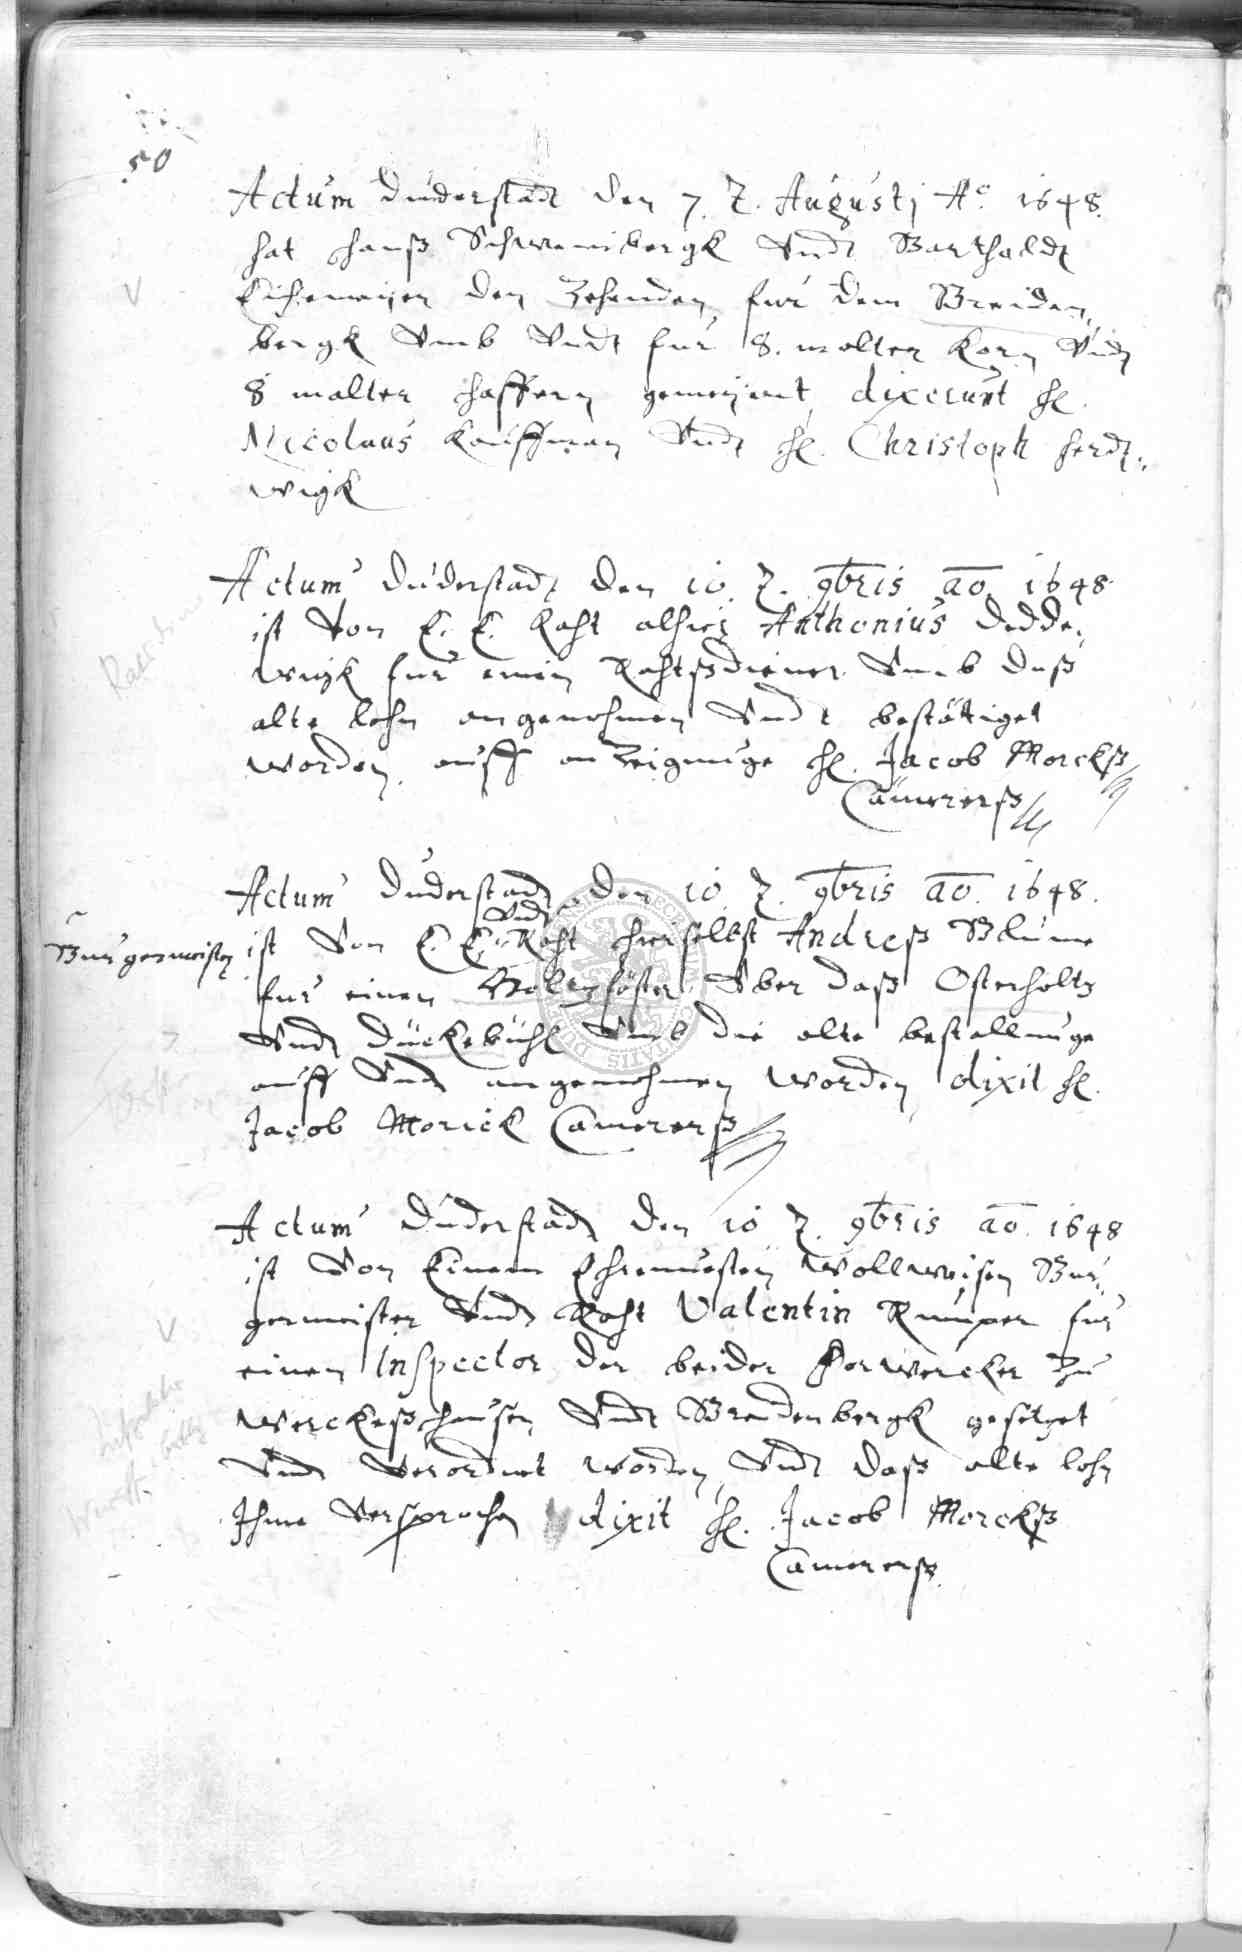 50
Actum Duderstadt den 7. t. Augusti Aº 1648.
hat Hanß Schwanibergk Vndt Barthaldt
Eichemeijer den Zehenden fur dem Breiden¬
bergk Vmb Vndt fur 8. malter Korn Vndt
8 malter Haffern gemeijert dixerunt H.
Nicolaus Kauffman Vndt H. Christoph Herdt¬
wigk
Actum Duderstadt den 10. t. 9bris ao 1648
ist Von E. E. Raht alhier Anthonius Dedde¬
wigk fur einen Rahtsdiener Vmb daß
alte lohn angenohmen Vndt bestätiget
worden auff anzeignuge H. Jacob Morckß
Cämrerß
Actum Duderstadt den 10. t. 9bris ao. 1648.
Vndt
Burgermeister ist Von E. E. Raht hierselbst Andreß Blume
fur einen Holtzföster Vber daß Osterholtz
Vndt Dückebühl Vmb die alte bestallunge
auff Vndt angenohmen worden dixit H.
Jacob Morick Camererß
Actum Duderstadt den 10 t. 9bris ao. 1648
ist Von Einem Ehrenuesten Wollweisen Bur¬
germeister Vndt Raht Valentin Kumper fur
einen Inspector der beider Forwercker zu
Werckeßhausen Vndt Breidenbergk gesetzet
Vndt Verordnet worden Vndt daß alte lohn
Ihme Versprochen dixit H. Jacob Morckß
Camererß.